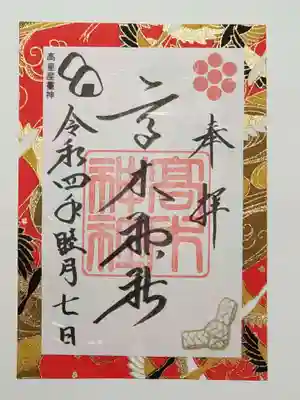 奉拝
高木神社
高木神社
令和四年睦月七日
高皇産霊神